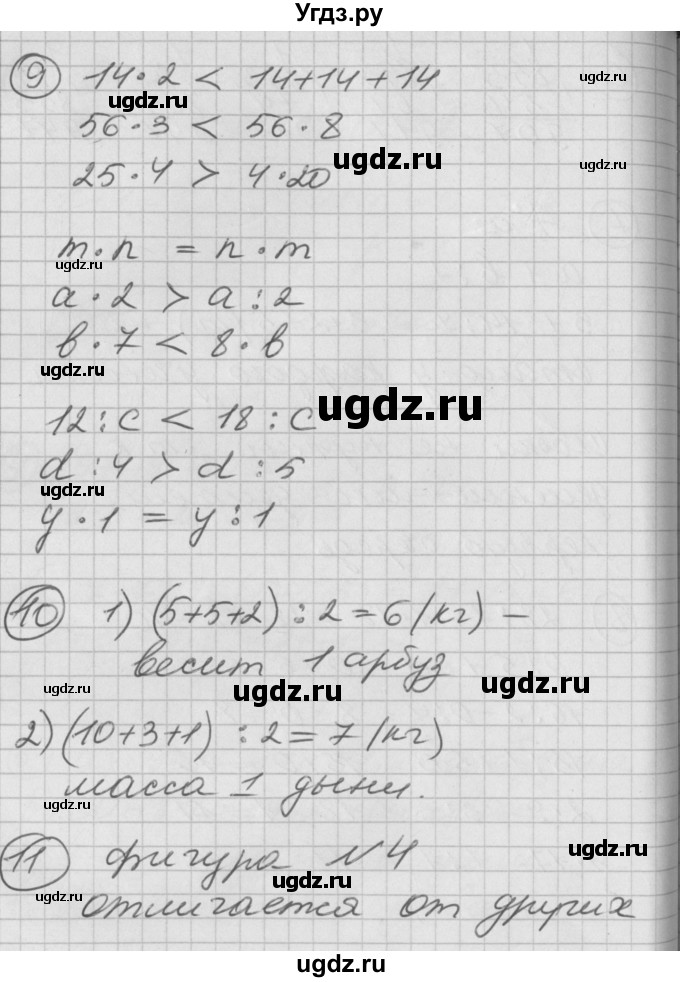 Угдз.ру
9 14·2 < 14+14+14
ugdz.ru ugdz.ru
56·3 < 56·8
ugdz.ru ugdz.ru
25·4 > 4·20
m·n = n·m
ugdz.ru
a·2 > a:2
в·7 < 8·в
ugdz.ru
ugdz.ru
12:c < 18:c
d:4 > d:5
ugdz.ru ugdz.ru
y·1 = y:1
10 1) (5+5+2):2=6(кг) –
весит 1 арбуз
ugdz.ru ugdz.ru ugdz.ru
2) (10+3+1):2=7(кг)
масса 1 дыни.
ugdz.ru
11 фигура №4
ugdz.ru
ugdz.ru ugdz.ru
отличается от других
ugdz.ru